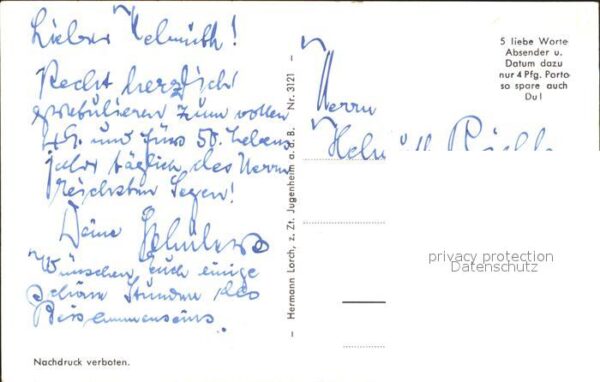 Lieber Helmuth!
Recht herzlich
gratulieren zum vollen
49. und fürs 50. Lebens
jahr täglich des Herrn
reichsten Segen!
Deine
Wünschen Euch einige
schöne Stunden des
Beisammenseins.
Nachdruck verboten.
– Hermann Lorch, z. Zt. Jugenheim a. d. B. Nr. 3121 –
5 liebe Worte
Absender u.
Datum dazu
nur 4 Pfg. Porto
so spare auch
Du!
Herrn
privacy protection
Datenschutz